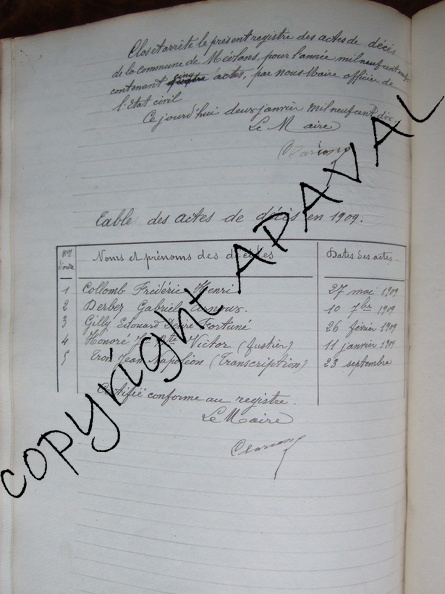 Clos et arrêté le présent registre des actes de décès
de la commune de Méolans, pour l'année mil neuf cent neuf
contenant cinq actes, par nous Maire officier de
l'état civil
Ce jourd'hui deux janvier mil neuf cent dix
Le Maire
Table des actes de décès en 1909.
Nos d'ordre Noms et prénoms des décédés Dates des actes
1 Collomb Frédéric Henri 27 mai 1909
2 Derbez Gabriel 10 7bre 1909
3 Gilly Edouard Fortuné 26 février 1909
4 Honoré Victor (Justier) 11 janvier 1909
5 Tron Jean Napoléon (Transcription) 23 septembre
Certifié conforme au registre.
Le Maire
copyright APAVAL